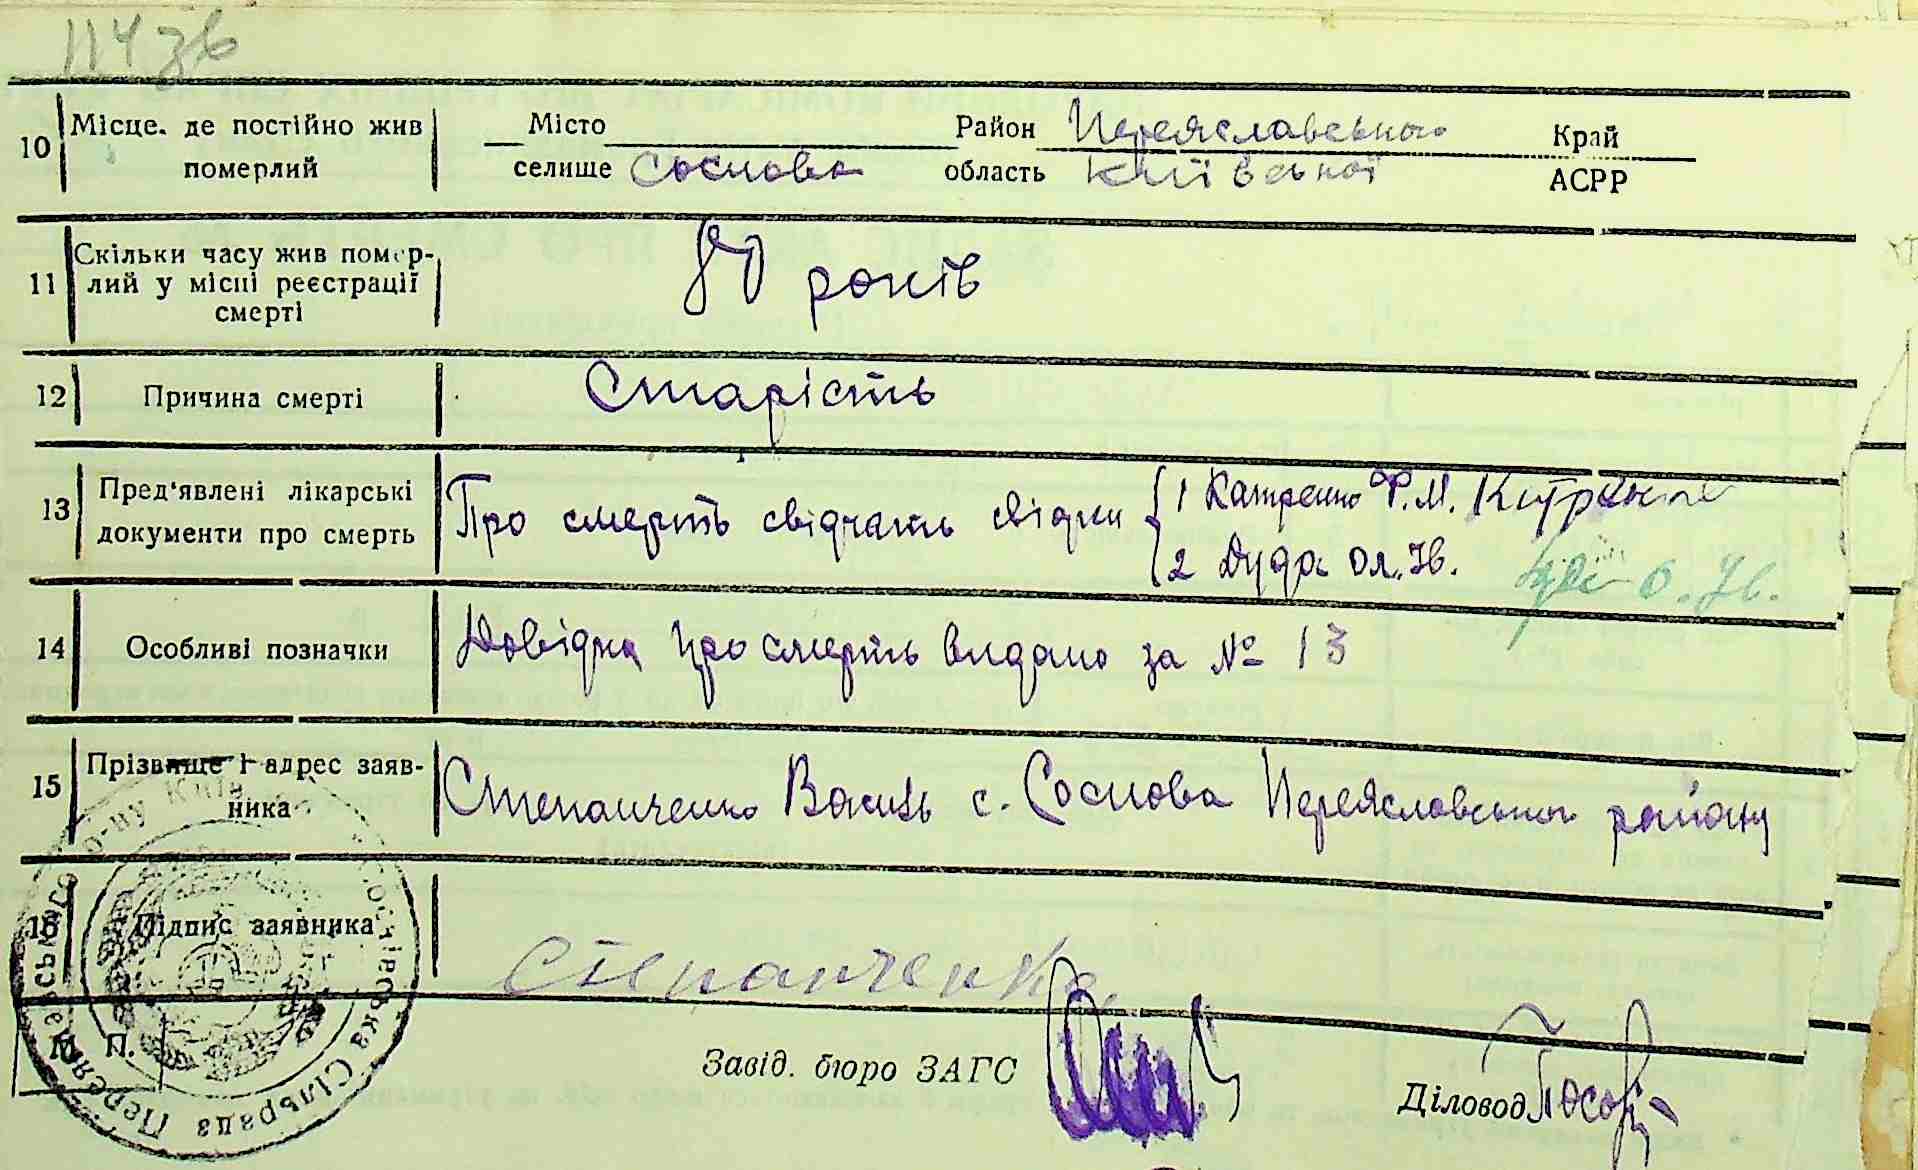 114 зв
10 Місце. де постійно жив померлий Місто селище Соснова Район Переяславського область Київської Край АСРР
11 Скільки часу жив помер-лий у місці реєстрації смерті 80 років
12 Причина смерті Старість
13 Пред'явлені лікарські документи про смерть Про смерть свідчать свідки 1 Катренко Ф.М. Катренко
2 Дуда Ол.Ів. О.Ів.
14 Особливі позначки Довідка про смерть видано за № 13
15 Прізвище і адрес заяв-ника Степанченко Василь с. Соснова Переяславського району
16 Підпис заявника Степанченко
М. П.
Сільрада
Завід. бюро ЗАГС
Діловод